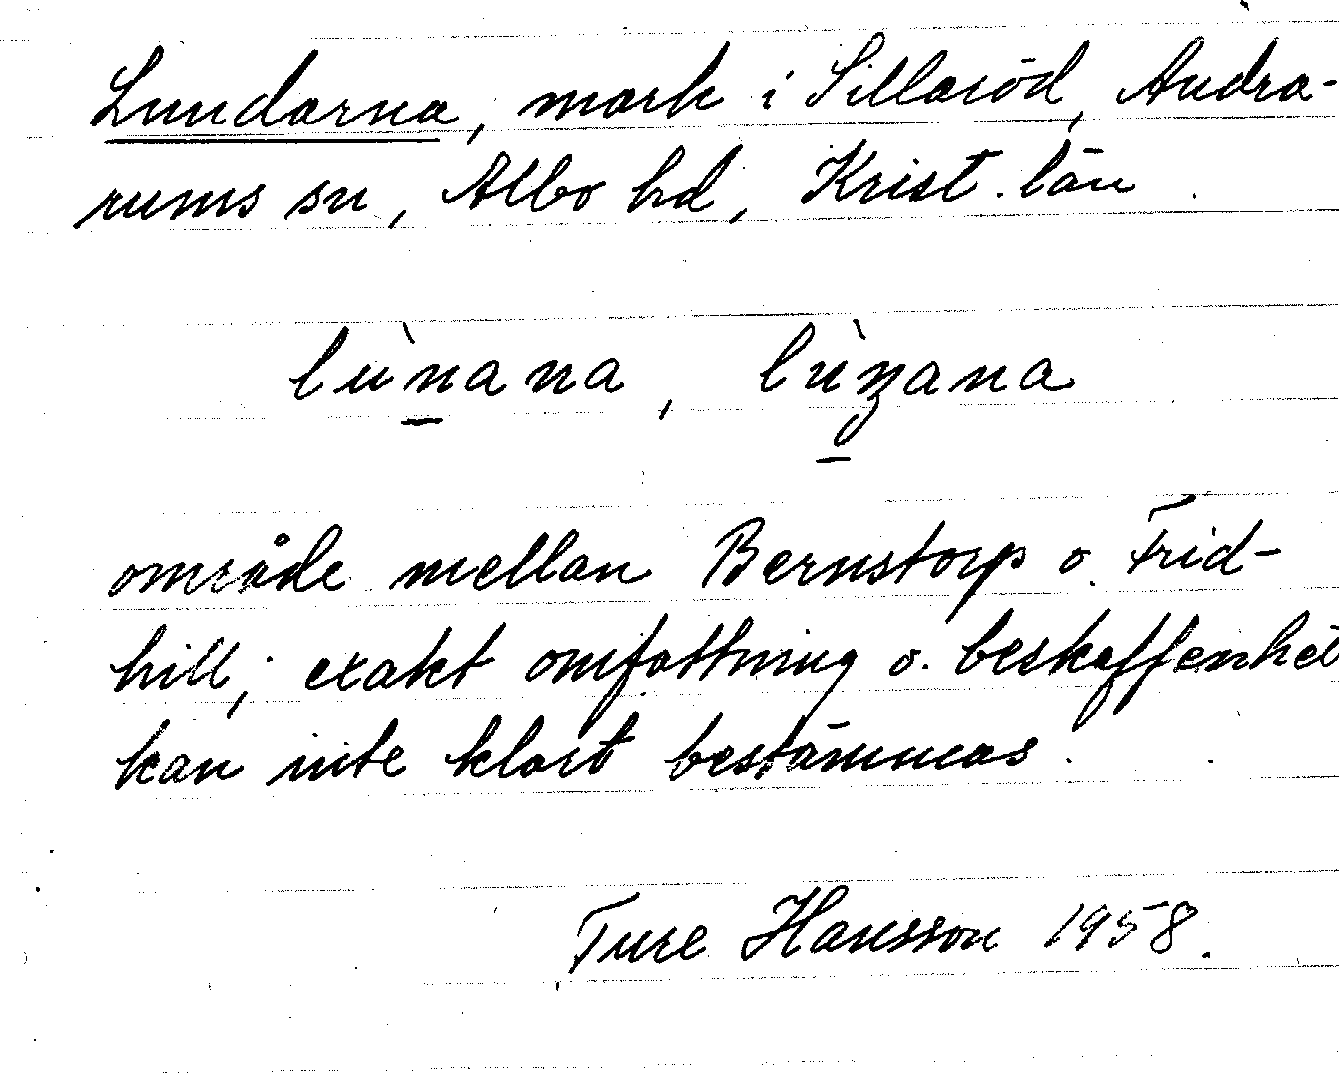 Lundarna, mark i Sillaröd, Andra-
rums sn, Albo hd, Krist. län
lùnana, lùn̥ana
område mellan Bernstorp o. Frid-
hill; exakt omfattning o. beskaffenhet
kan inte klart bestämmas.
Ture Hansson 1958.